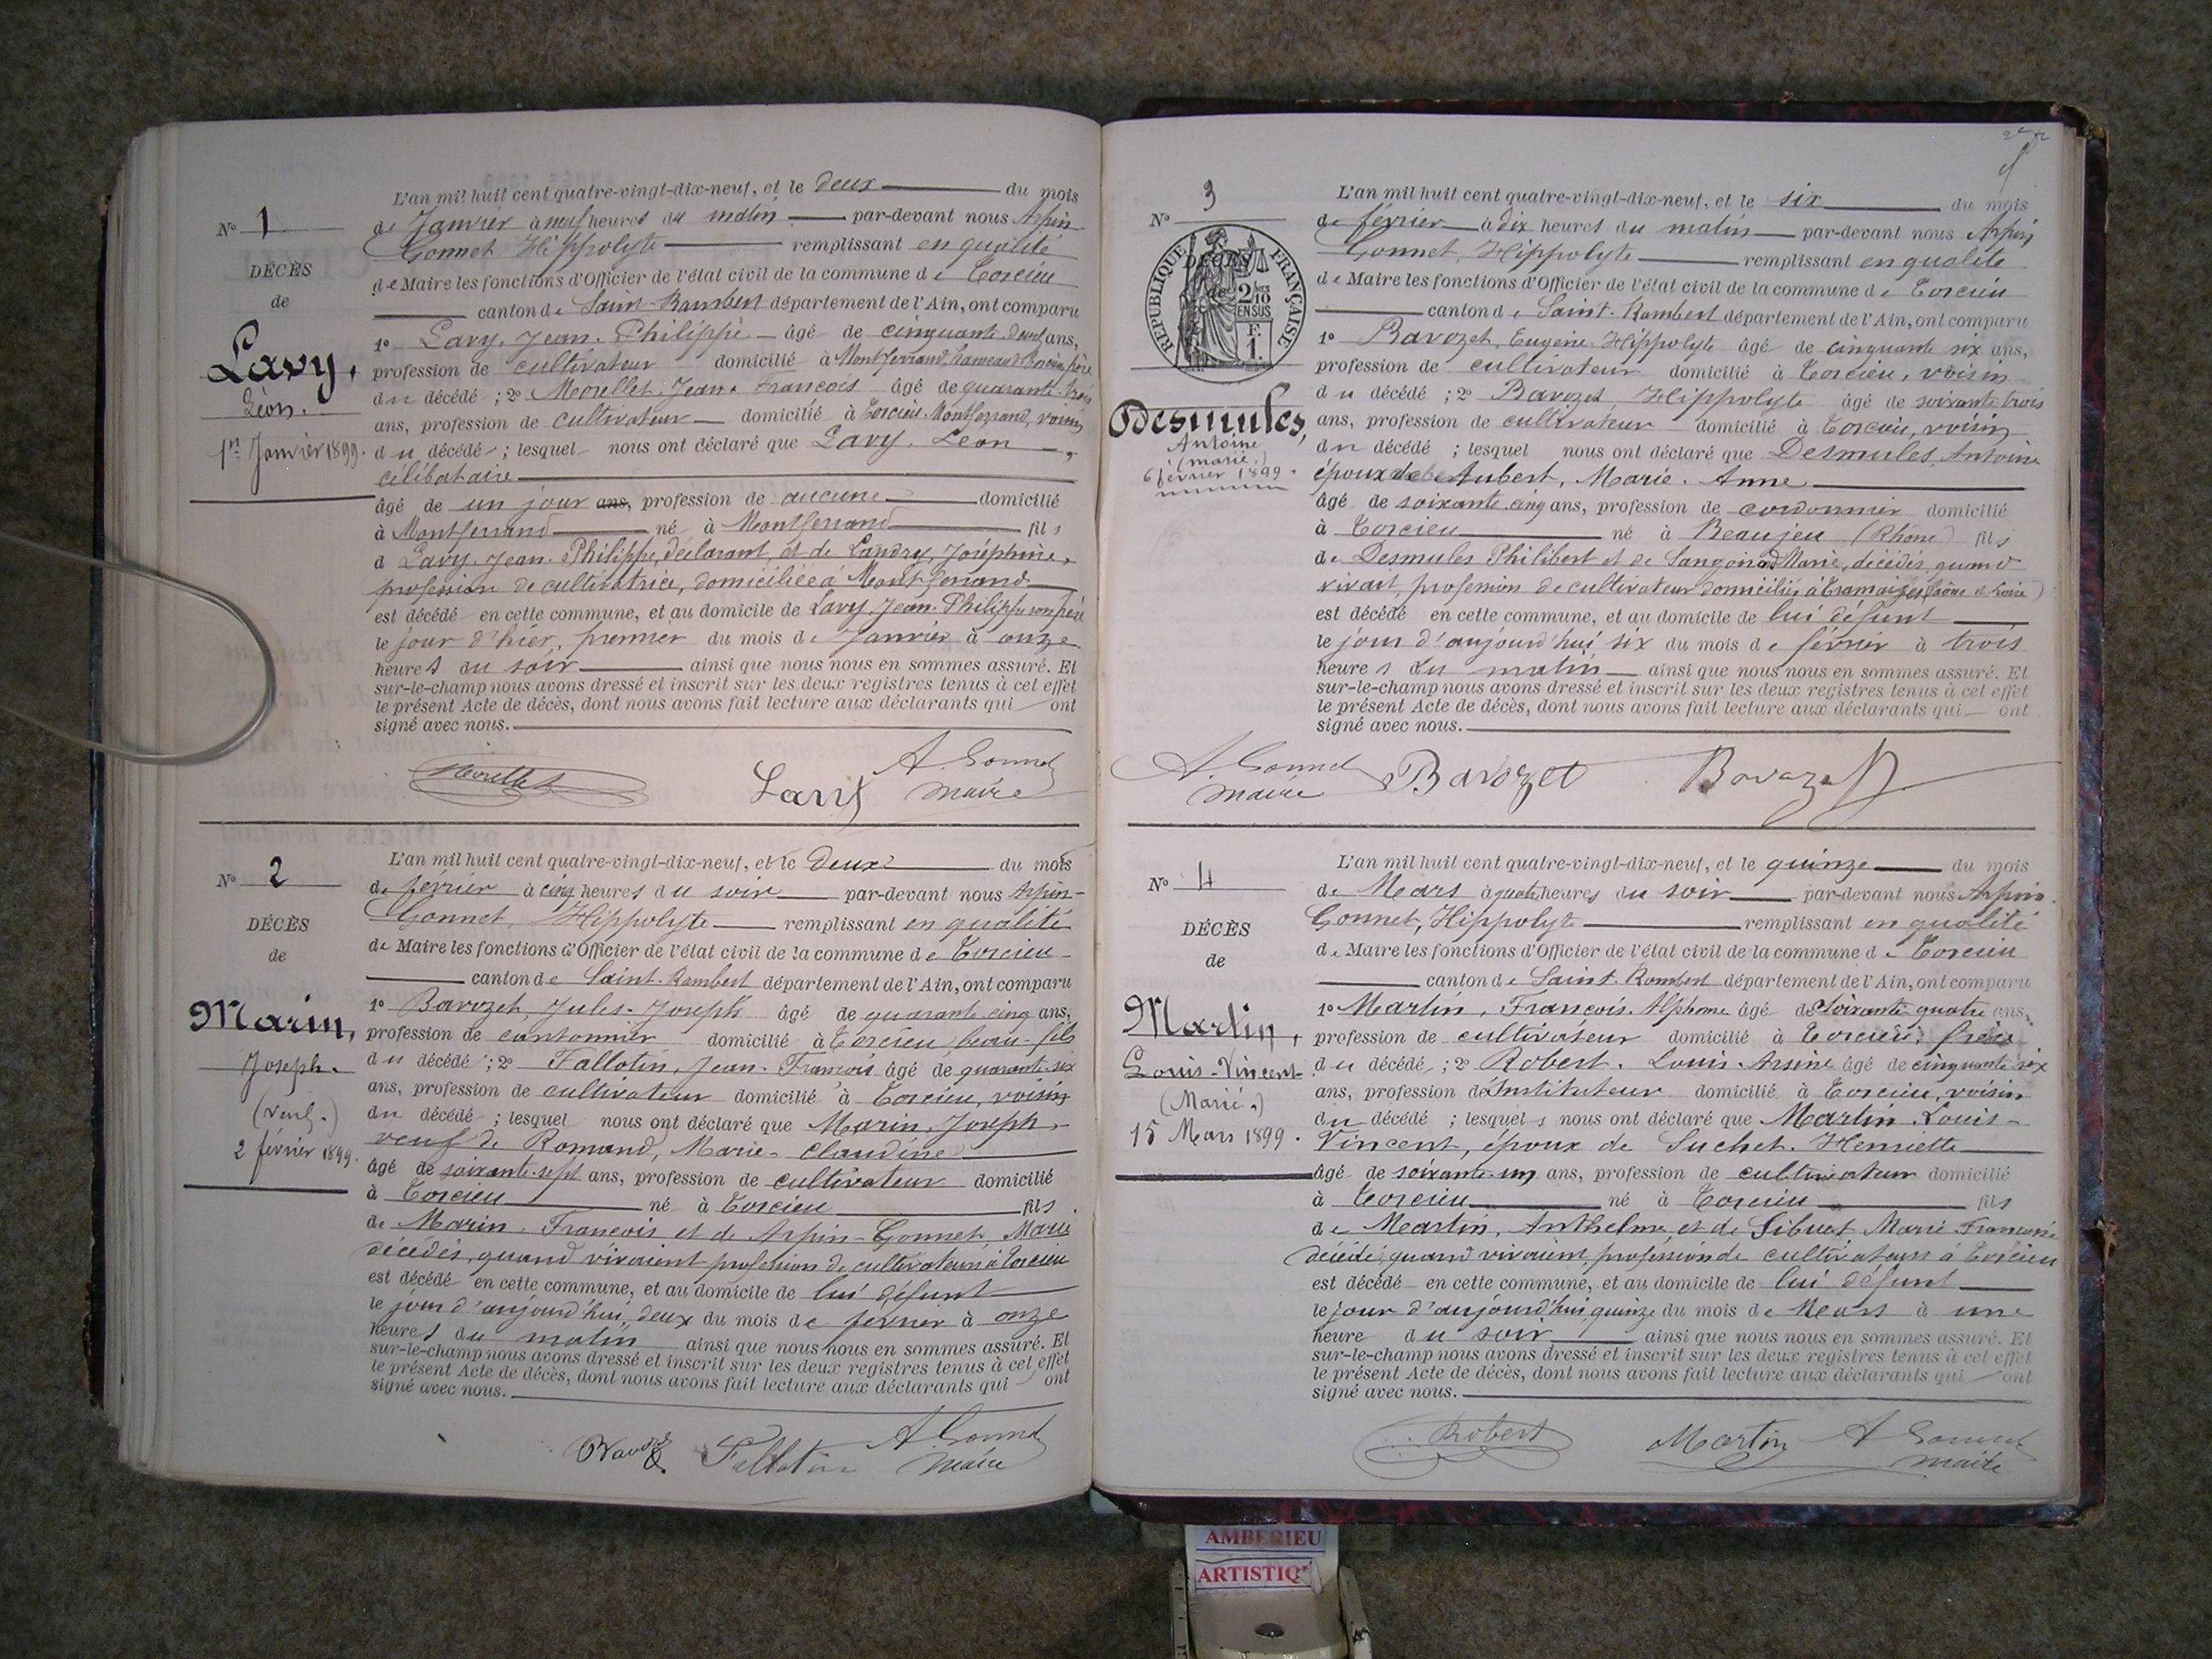 L'an mil huit cent quatre-vingt-dix-neuf, et le deux du mois
de Janvier à neuf heures du matin par-devant nous Arpin-
Gonnet Hippolyte remplissant en qualité
de Maire les fonctions d'Officier de l'état civil de la commune de Torcieu
canton de Saint-Rambert département de l'Ain, ont comparu
1º Lavy, Jean-Philippe âgé de cinquante deux ans,
profession de cultivateur domicilié à Montferrand, hameau de Torcieu, père
du décédé ; 2º Morellet, Jean-François âgé de quarante-trois
ans, profession de cultivateur domicilié à Torcieu-Montferrand, voisin
du décédé ; lesquel nous ont déclaré que Lavy, Léon,
célibataire
âgé de un jour ans, profession de aucune domicilié
à Montferrand né à Montferrand fils
d Lavy, Jean-Philippe, déclarant et de Landry, Joséphine,
profession de cultivatrice, domiciliée à Montferrand
est décédé en cette commune, et au domicile de Lavy Jean-Philippe son père
le jour d'hier, premier du mois de Janvier à onze
heures du soir ainsi que nous nous en sommes assuré. Et
sur-le-champ nous avons dressé et inscrit sur les deux registres tenus à cet effet
le présent Acte de décès, dont nous avons fait lecture aux déclarants qui ont
signé avec nous.
Nº 1
DÉCÈS
de
Lavy,
Léon.
1er Janvier 1899.
Morellet Lavy A. Gonnet
Maire
L'an mil huit cent quatre-vingt-dix-neuf, et le deux du mois
de février à cinq heures du soir par-devant nous Arpin-
Gonnet, Hippolyte remplissant en qualité
de Maire les fonctions d'Officier de l'état civil de la commune de Torcieu
canton de Saint-Rambert département de l'Ain, ont comparu
1º Bavozet, Jules-Joseph âgé de quarante cinq ans,
profession de cantonnier domicilié à Torcieu, beau-fils
du décédé ; 2º Fallotin, Jean-François âgé de quarante-six
ans, profession de cultivateur domicilié à Torcieu, voisin
du décédé ; lesquel nous ont déclaré que Marin, Joseph,
veuf de Romand, Marie-Claudine
âgé de soixante-sept ans, profession de cultivateur domicilié
à Torcieu né à Torcieu fils
de Marin, François et de Arpin-Gonnet, Marie
décédés, quand vivaient profession de cultivateurs à Torcieu
est décédé en cette commune, et au domicile de lui défunt
le jour d'aujourd'hui, deux du mois de février à onze
heures du matin ainsi que nous nous en sommes assuré. Et
sur-le-champ nous avons dressé et inscrit sur les deux registres tenus à cet effet
le présent Acte de décès, dont nous avons fait lecture aux déclarants qui ont
signé avec nous.
Nº 2
DÉCÈS
de
Marin,
Joseph.
(veuf.)
2 février 1899.
Fallotin A. Gonnet
Maire
L'an mil huit cent quatre-vingt-dix-neuf, et le six du mois
de février à dix heures du matin par-devant nous Arpin
Gonnet, Hippolyte remplissant en qualité
de Maire les fonctions d'Officier de l'état civil de la commune de Torcieu
canton de Saint-Rambert département de l'Ain, ont comparu
1º Bavozet, Eugène-Hippolyte âgé de cinquante six ans,
profession de cultivateur domicilié à Torcieu, voisin
du décédé ; 2º Bavozet, Hippolyte âgé de soixante trois
ans, profession de cultivateur domicilié à Torcieu, voisin
du décédé ; lesquel nous ont déclaré que Desmules, Antoine
époux de Aubert, Marie-Anne
âgé de soixante cinq ans, profession de cordonnier domicilié
à Torcieu né à Beaujeu (Rhône) fils
de Desmules Philibert et de Marie, décédés, quand
vivait, profession de cultivateur domiciliés à Tramaizes (Saône et Loire)
est décédé en cette commune, et au domicile de lui défunt
le jour d'aujourd'hui six du mois de février à trois
heures du matin ainsi que nous nous en sommes assuré. Et
sur-le-champ nous avons dressé et inscrit sur les deux registres tenus à cet effet
le présent Acte de décès, dont nous avons fait lecture aux déclarants qui ont
signé avec nous.
Nº 3
RÉPUBLIQUE FRANÇAISE
DÉCÈS
de
2/10
EN SUS
F.
1.
Desmules,
Antoine
(marié.)
6 février 1899.
A. Gonnet Bavozet Bavozet
Maire
L'an mil huit cent quatre-vingt-dix-neuf, et le quinze du mois
de Mars à quatre heures du soir par-devant nous Arpin
Gonnet, Hippolyte remplissant en qualité
de Maire les fonctions d'Officier de l'état civil de la commune de Torcieu
canton de Saint-Rambert département de l'Ain, ont comparu
1º Martin, François-Alphonse âgé de soixante-quatre ans,
profession de cultivateur domicilié à Torcieu, frère
du décédé ; 2º Robert, Louis-Arsène âgé de cinquante-six
ans, profession d'Instituteur domicilié à Torcieu, voisin
du décédé ; lesquels nous ont déclaré que Martin, Louis-
Vincent, époux de Suchet, Henriette
âgé de soixante-un ans, profession de cultivateur domicilié
à Torcieu né à Torcieu fils
de Martin, Anthelme, et de Sibuet Marie-Françoise
décédés, quand vivaient, profession de cultivateurs à Torcieu
est décédé en cette commune, et au domicile de lui défunt
le jour d'aujourd'hui, quinze du mois de Mars à une
heure du soir ainsi que nous nous en sommes assuré. Et
sur-le-champ nous avons dressé et inscrit sur les deux registres tenus à cet effet
le présent Acte de décès, dont nous avons fait lecture aux déclarants qui ont
signé avec nous.
Nº 4
DÉCÈS
de
Martin,
Louis-Vincent
(Marié.)
15 Mars 1899.
Robert Martin A Gonnet
Maire
AMBERIEU
ARTISTIQ